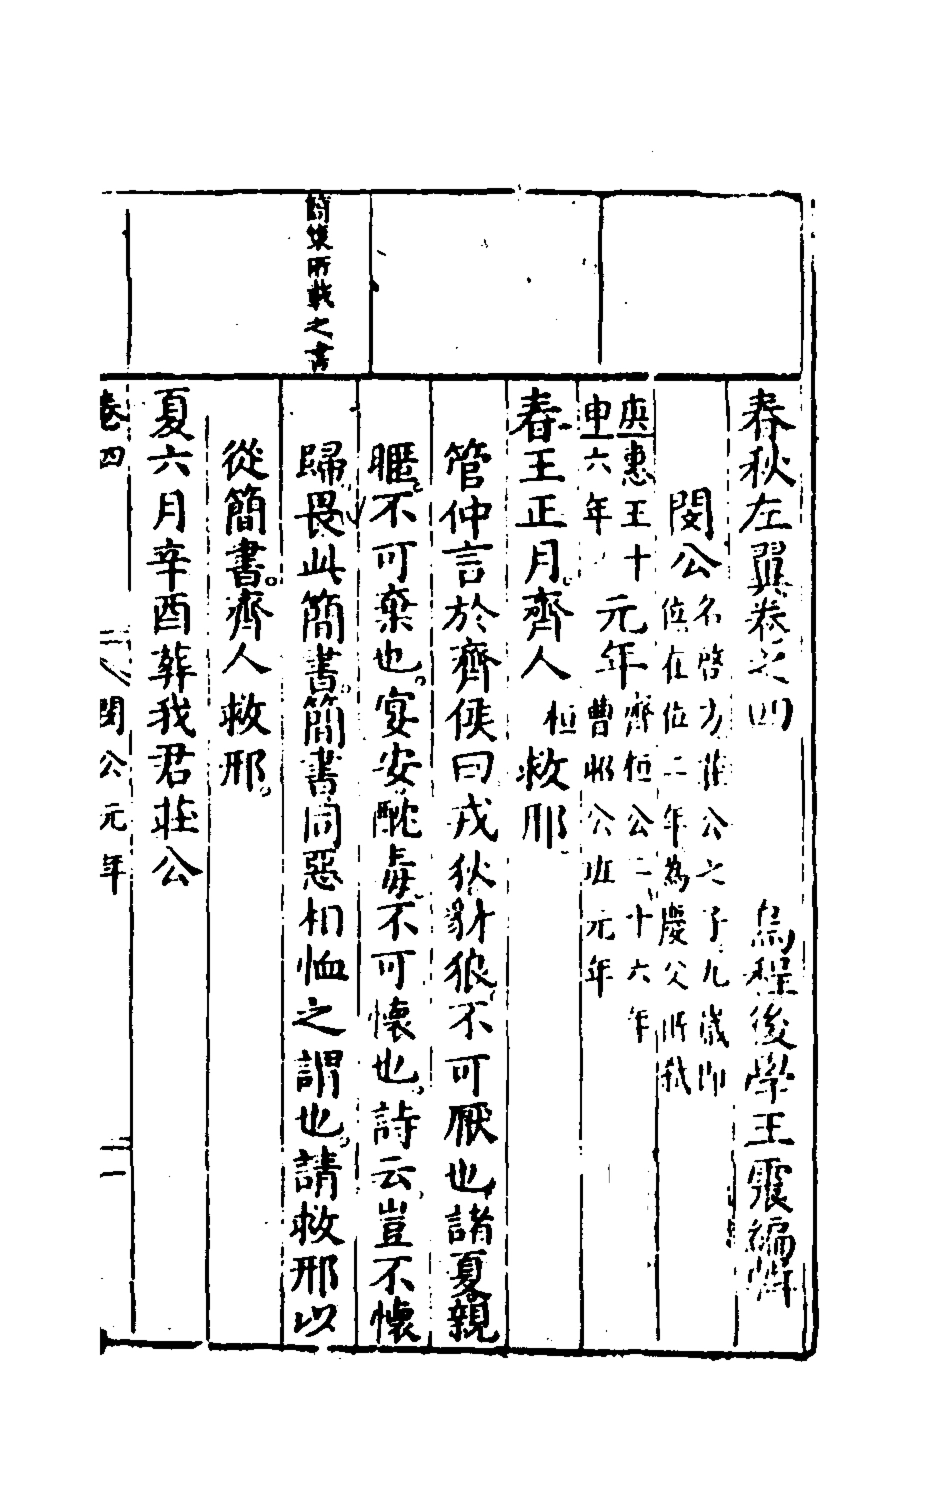 春秋左翼卷之四
烏程後學王震編輯
閔公名啓方莊公之子九歲即
位在位二年為慶父所弒
庚申惠王十六年元年齊桓公二十六年
曹昭公班元年
春王正月齊人桓救邢
管仲言於齊侯曰戎狄豺狼不可厭也諸夏親
暱不可棄也宴安酖毒不可懷也詩云豈不懷
歸畏此簡書簡書同惡相恤之謂也請救邢以
從簡書齊人救邢
夏六月辛酉葬我君莊公
簡策所載之書
卷四
閔公元年
一